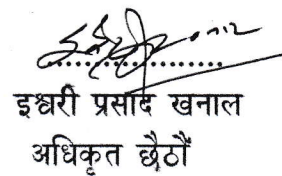 इश्वरी प्रसाद खनाल
अधिकृत छैठौं